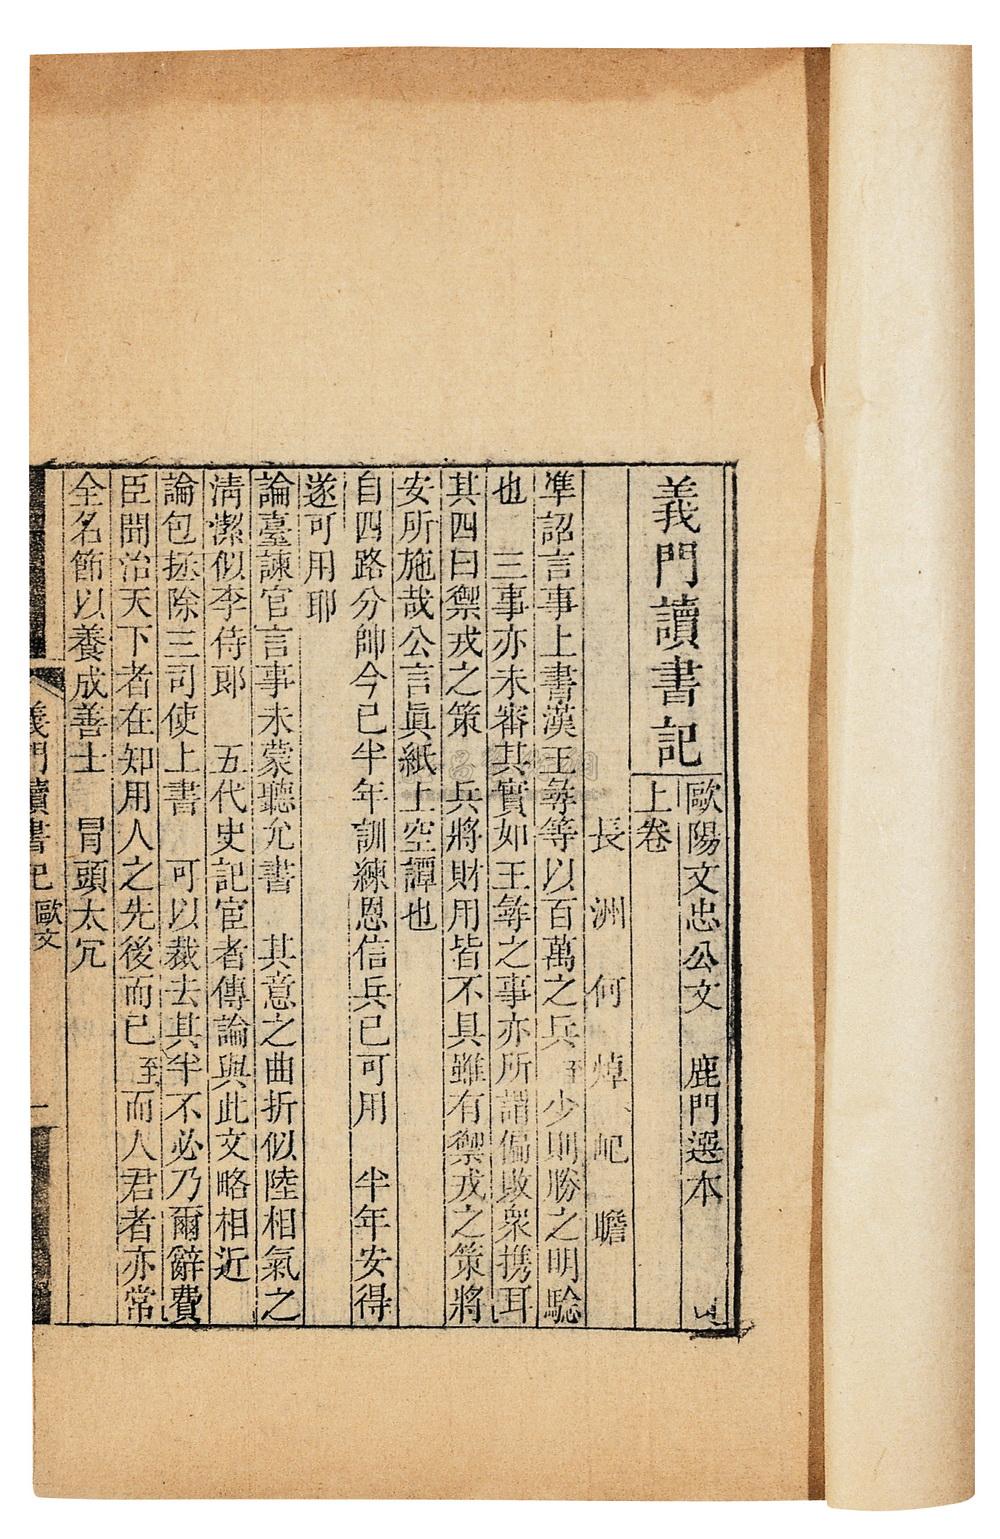 義門讀書記
歐陽文忠公文　鹿門選本
上卷
長洲何焯屺瞻
準詔言事上書漢王尋等以百萬之兵至少則勝之明驗
也　三事亦未審其實如王尋之事亦所謂偏敗衆攜耳
其四曰禦戎之策　兵將財用皆不具雖有禦戎之策將
安所施哉公言眞紙上空譚也
自四路分帥今已半年訓練恩信兵已可用　半年安得
遂可用耶
論臺諫官言事未蒙聽允書　其意之曲折似陸相氣之
淸潔似李侍郞　五代史記宦者傳論與此文略相近
論包拯除三司使上書　可以裁去其半不必乃爾辭費
臣聞治天下者在知用人之先後而已至而人君者亦常
全名節以養成善士　冐頭太冗
義門讀書記
歐文
一